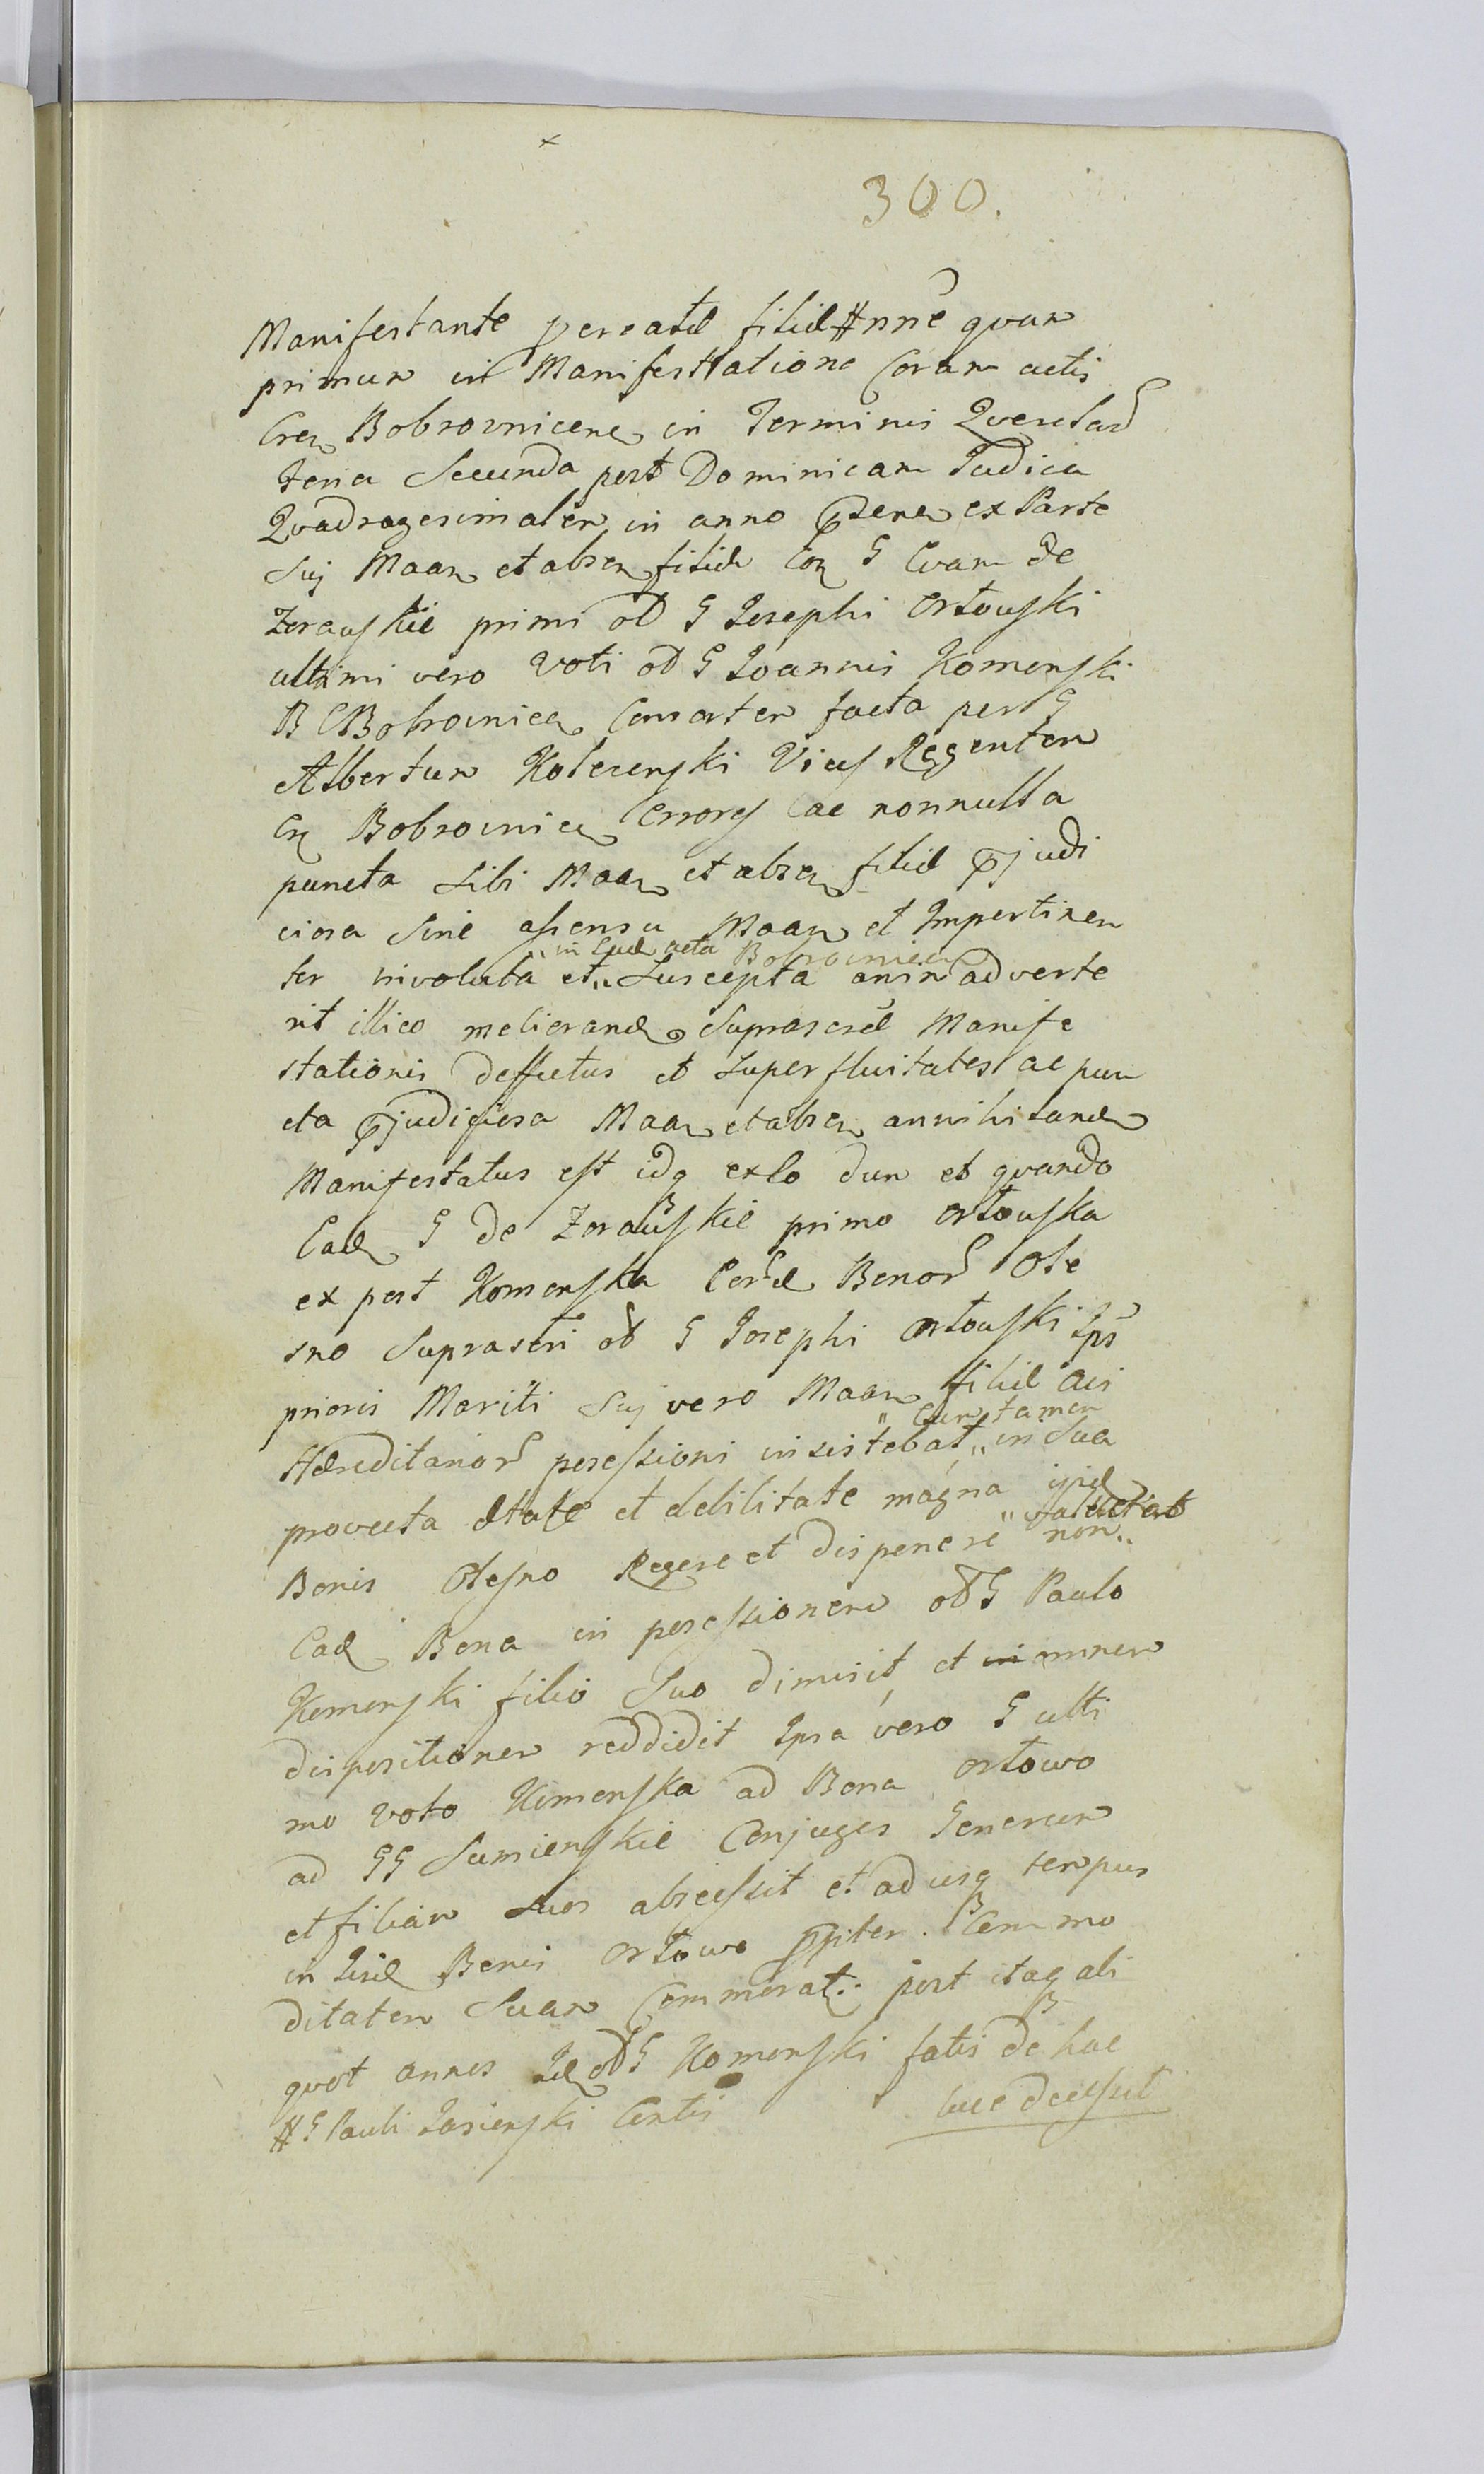 300.
Manifestante procatd filid # nne quam
primum in Manifestatione Coram actis
Cren Bobrovnicen in Terminis Querelar
Feria Secunda post Dominicam Judica
Quadragesimalem in anno pdene ex Parte
Suj Maan et absen filid G Evam de
Zorawskie primi od G Josephi Orłowski
ultimi vero Voti od G Joannis Komorski
B C Bobrovnicen Consorten facta per G
Albertum Kolecenski Vices Regentem
Bobrovnicen Errores ac nonnulla
puncta Sibi Maan et absen filid pjudi
ciosa Sine assensu Maan et Impertinen
in acta Bobrovnicen
ter involuta et„ Suscepta animadverte
rit illico meliorand Suprascrd Manife
stationis deffectus et superfluitates ac pun
cta pjudiciosa Maan et absen annihiland
Manifestatus est idq exlo dum et quando
Ead G de Zorawskie primo Orłowska
ex post Komorska Benor Ole
sno Suprascri od G Josephi Orłowski Ips
prioris Mariti Suj vero Maan filid
„Cum tamen
Hæreditarior possessioni insistebat„ in Sua
provecta ætate et debilitate magna ijsd
„valuerat
Bonis Olesno Regere et disponere non„
Ead Bona in possessionem od G Paulo
Komorski filio Suo dimisit et in omnem
dispositionem reddidit Ipsa vero G ulti
mo voto Komorska ad Bona Orłowo
ad GG Sumienskie Conjuges Generum
et filiam Suos abscessit et ad usq tempus
in Iisd Bonis Orłowo ppter Commo
ditatem Suam Commorat. post itaq ali
quot annos Id od G Komorski fatis de hac
# G Pauli Jasienski luce decessit